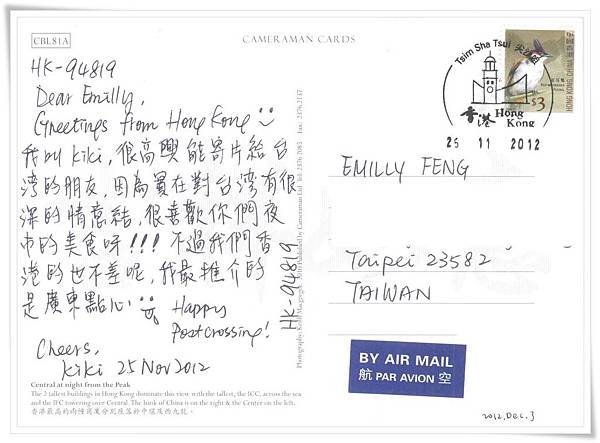 CBL81A
CAMERAMAN CARDS
HK-94819
Dear Emilly,
Greetings from Hong Kong
我叫Kiki, 很高興能寄片給台
灣的朋友, 因為實在對台灣有很
深的情意結, 很喜歡你們夜
市的美食呀!!! 不過我們香
港的也不差呢, 我最推介的
是廣東點心
Happy
Postcrossing!
Cheers,
Kiki 25 Nov 2012
Central at night from the Peak
The 3 tallest buildings in Hong Kong dominate this view with the tallest, the ICC, across the sea
and the IFC towering over Central. The bank of China is on the right & the Center on the left.
香港最高的兩幢商廈分別座落於中環及西九龍。
Published by Cameraman Ltd Tel: 2376 2083 Fax: 2376 2137
HK-94819
Tsim Sha Tsui 尖沙咀
香港 Hong
Kong
25 11 2012
$3
HONG KONG, CHINA
EMILLY FENG
Taipei 23582
TAIWAN
BY AIR MAIL
航 PAR AVION 空
2012, Dec. 3